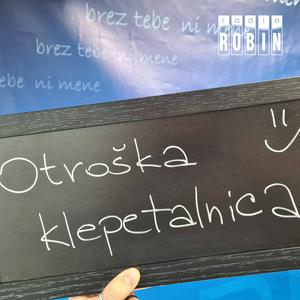 brez tebe ni mene
brez tebe ni mene
tebe ni mene
radio
ROBIN
Otroška
klepetalnica